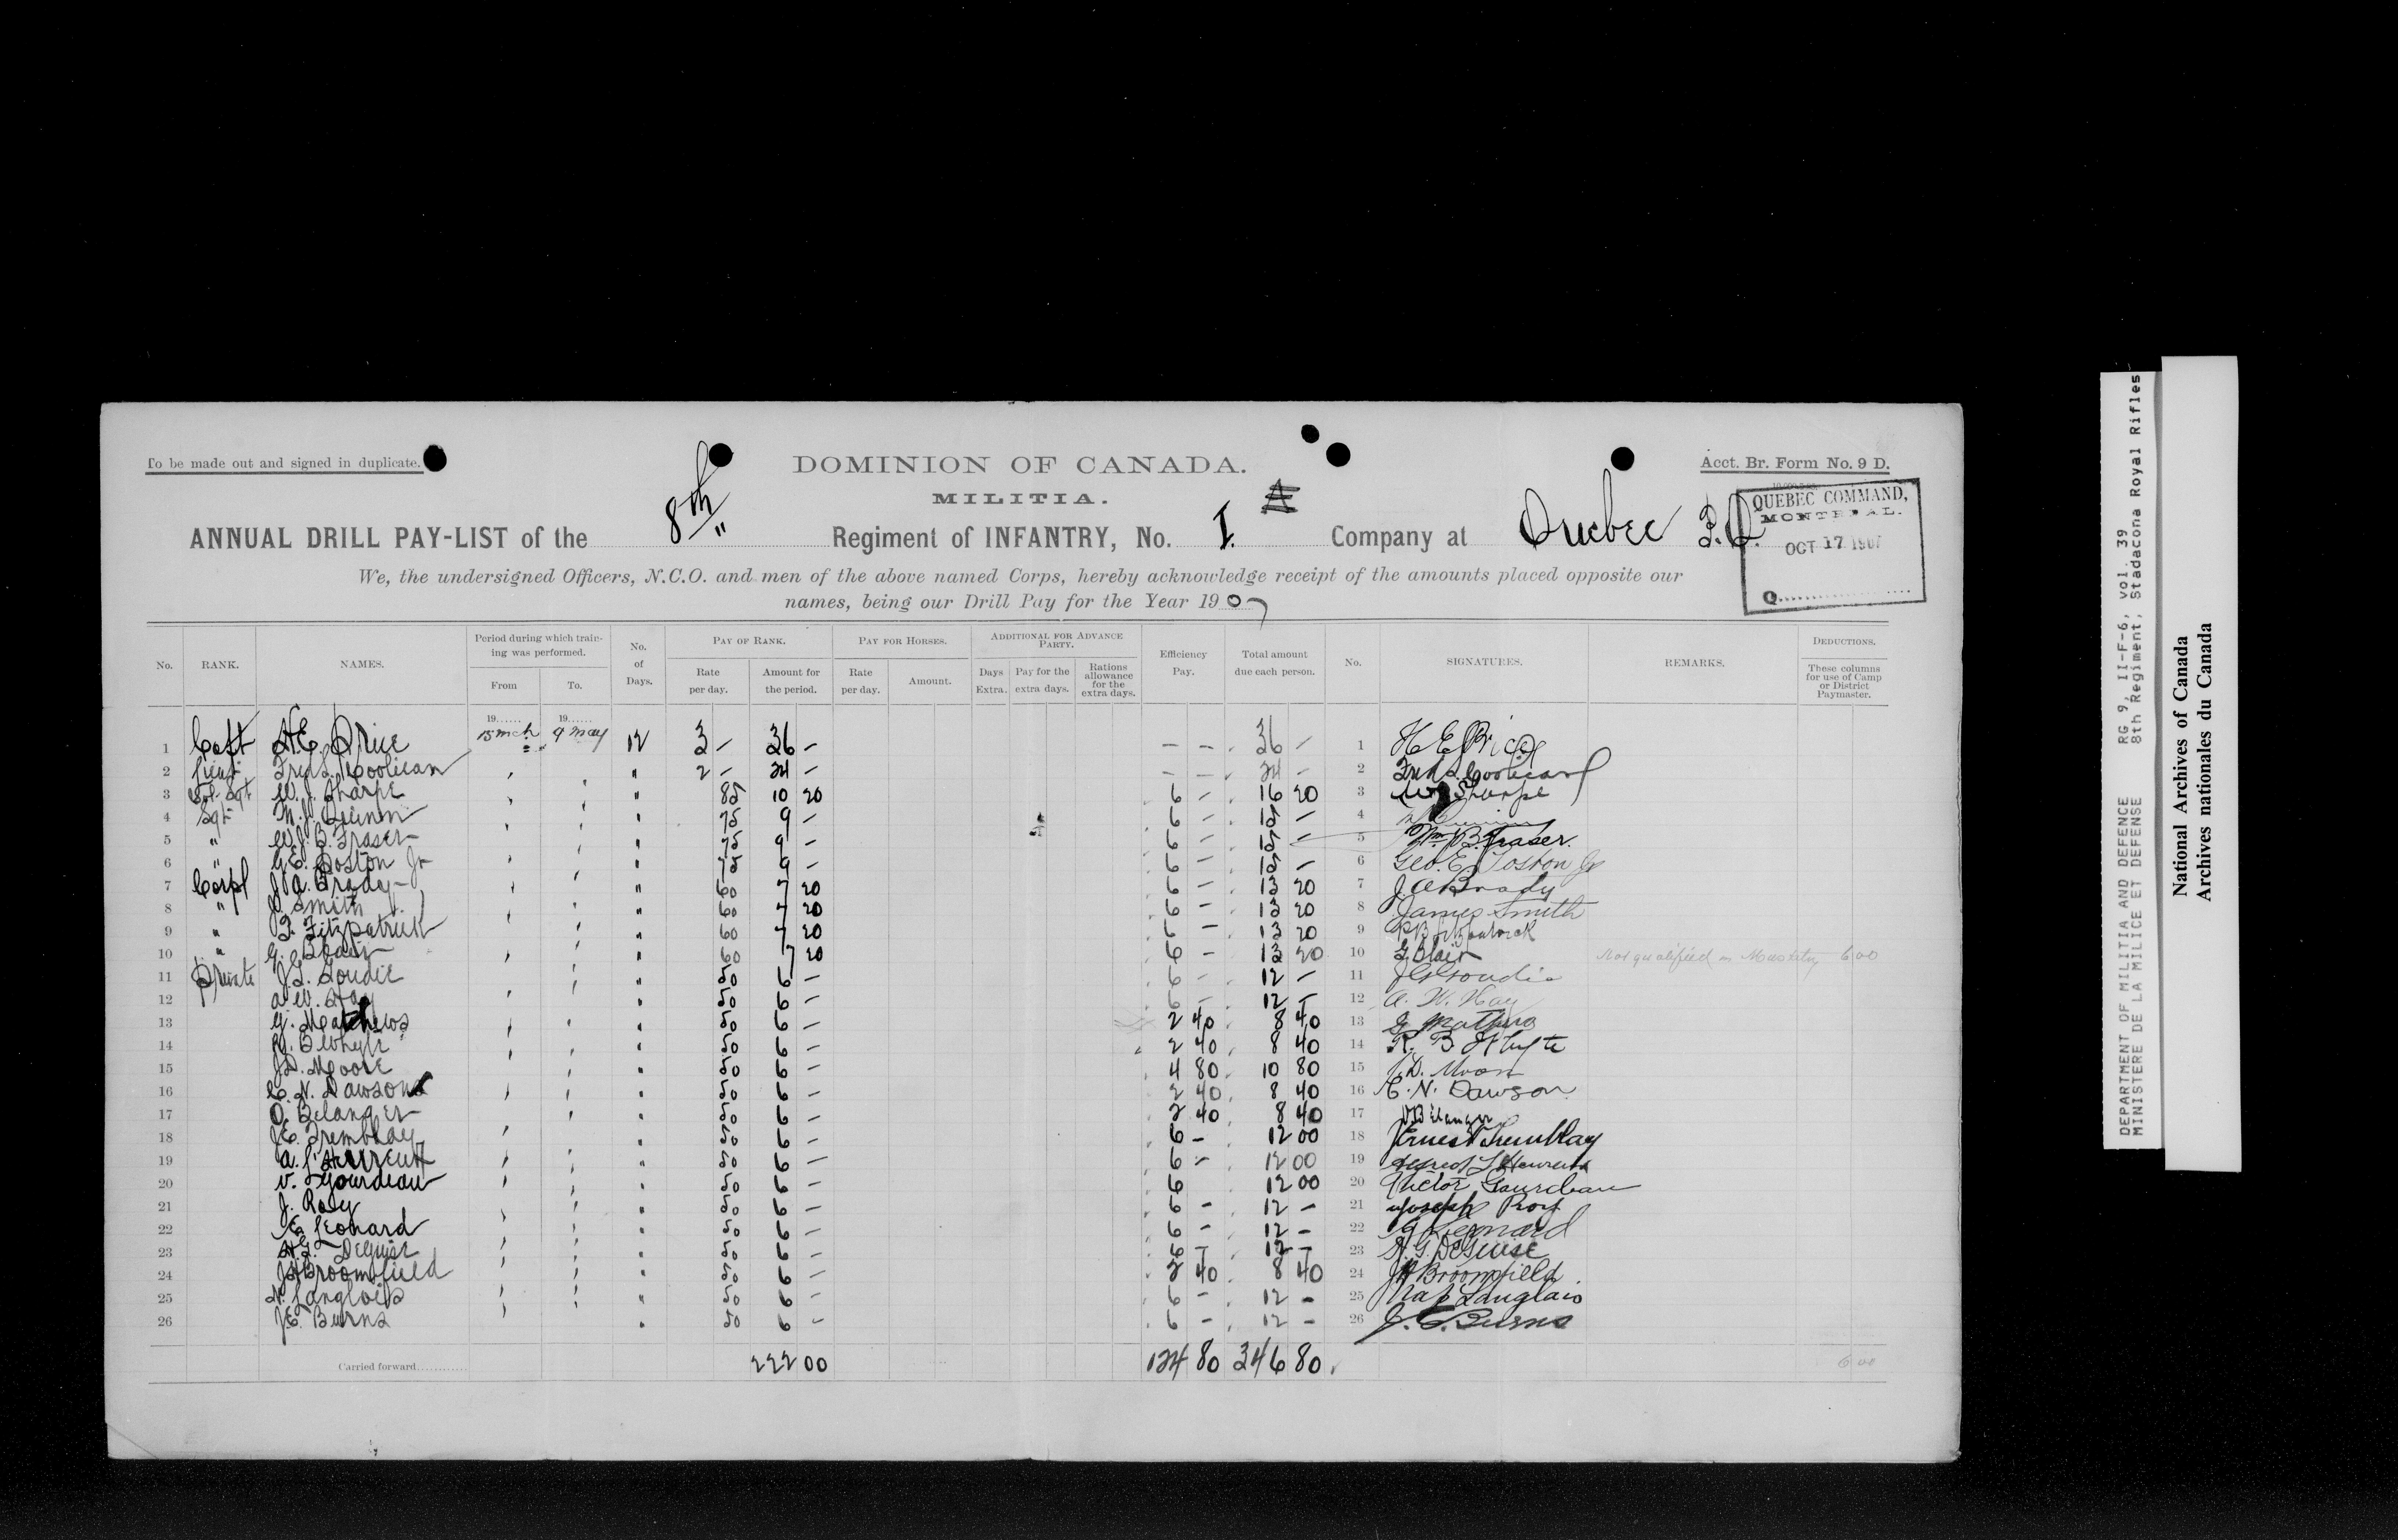 To be made out and signed in duplicate.
DOMINION OF CANADA.
Acct. Br. Form No. 9 D.
MILITIA.
QUEBEC COMMAND,
MONTREAL.
OCT 17 1907
Q
ANNUAL DRILL PAY-LIST of the 8th Regiment of INFANTRY, No. I. Company at Quebec P.Q.
We, the undersigned Officers, N.C.O. and men of the above named Corps, hereby acknowledge receipt of the amounts placed opposite our
names, being our Drill Pay for the Year 1907
No. RANK. NAMES. Period during which training was performed. From To. No. of Days. PAY OF RANK. Rate per day. Amount for the period. PAY FOR HORSES. Rate per day. Amount. ADDITIONAL FOR ADVANCE PARTY. Days Extra. Pay for the extra days. Rations allowance for the extra days. Efficiency Pay. Total amount due each person. No. SIGNATURES. REMARKS. DEDUCTIONS. These columns for use of Camp or District Paymaster.
19...... 19......
1 Capt H.E. Price 15 mch 9 May 12 3 – 36 – – – 36 – 1 H E Price
2 Lieut Fred L. Hoolican " 2 – 24 – – – 24 – 2
3 Col-Sgt W.J. Sharpe " 85 10 20 6 – 16 20 3 Sharpe
4 Sgt M.J. Quinn " 75 9 – 6 – 15 – 4
5 " W.J.B. Fraser " 75 9 – 6 – 15 – 5 Wm J B. Fraser.
6 " G.E. Poston Jr " 75 9 – 6 – 15 – 6 Geo. E. Poston Jr
7 Corpl J.A. Brady " 60 7 20 6 – 13 20 7 J. A Brady
8 " J. Smith " 60 7 20 6 – 13 20 8 James Smith
9 " P. Fitzpatrick " 60 7 20 6 – 13 20 9 P B Fitzpatrick
10 " G. Blair " 60 7 20 6 – 13 20 10 G Blair Not qualified in Musketry 6 00
11 Private J.G. Goudie " 50 6 – 6 – 12 – 11 J G Goudie
12 A.W. Hay " 50 6 – 6 – 12 – 12 A. W. Hay
13 G. Mathews " 50 6 – 2 40 8 40 13 G Mathews
14 R. B Whyte " 50 6 – 2 40 8 40 14 R. B Whyte
15 J.D. Moore " 50 6 – 4 80 10 80 15 J.D. Moore
16 C. N. Dawson " 50 6 – 2 40 8 40 16 C. N. Dawson
17 O. Belanger " 50 6 – 2 40 8 40 17 O Belanger
18 J.E. Tremblay " 50 6 – 6 – 12 00 18 J Ernest Tremblay
19 A. L'Heureux " 50 6 – 6 – 12 00 19 Alfred L'Heureux
20 V. Gourdeau " 50 6 – 6 12 00 20 Victor Gourdeau
21 J. Roy " 50 6 – 6 – 12 – 21 Joseph Roy
22 G. Leonard " 50 6 – 6 – 12 – 22 G Leonard
23 H.G. DeGuise " 50 6 – 6 – 12 – 23 H. G. DeGuise
24 J.H Broomfield " 50 6 – 2 40 8 40 24 J H Broomfield
25 N. Langlois " 50 6 – 6 – 12 – 25 Nap Langlois
26 J.E. Burns " 50 6 – 6 – 12 – 26 J. E. Burns
Carried forward............ 222 00 124 80 346 80 6 00
DEPARTMENT OF MILITIA AND DEFENCE RG 9, II-F-6, vol. 39
MINISTERE DE LA MILICE ET DEFENSE 8th Regiment, Stadacona Royal Rifles
National Archives of Canada
Archives nationales du Canada